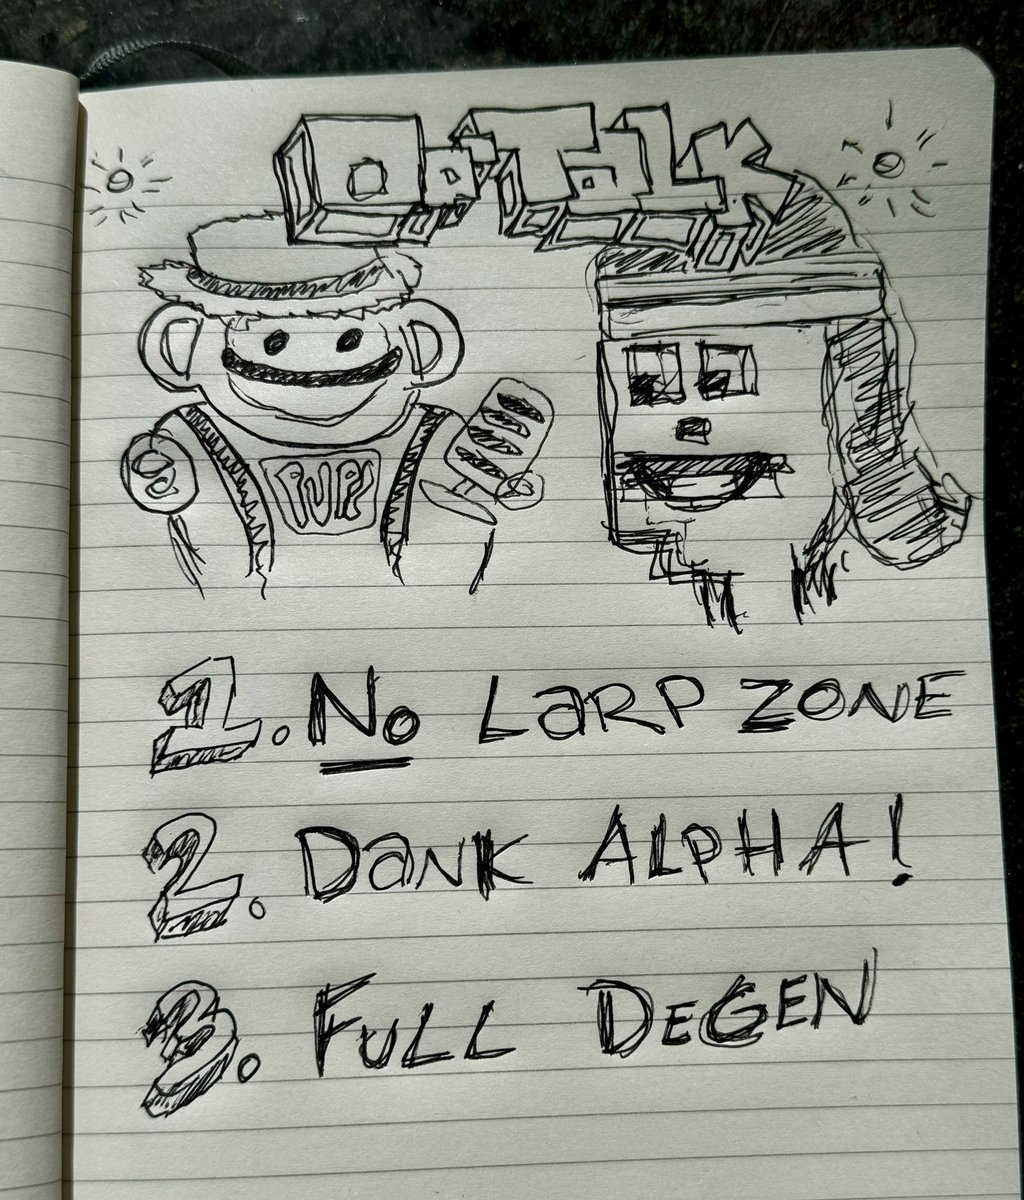 Oo'Talk
PUPS
1. No LaRP ZONE
2. DaNK ALPHA!
3. FULL DeGEN